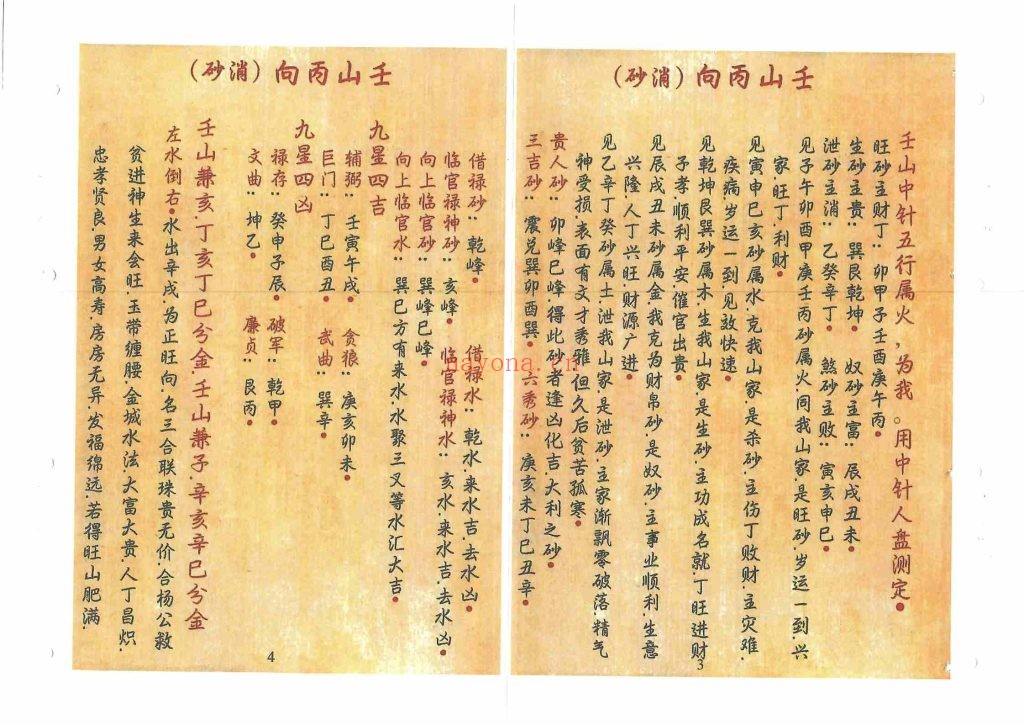 壬山丙向（消砂）
壬山中针五行属火，为我。用中针人盘测定。
旺砂主财丁：卯甲子壬酉庚午丙。
生砂主贵：巽艮乾坤 奴砂主富：辰戌丑未
泄砂主消：乙癸辛丁 煞砂主败：寅亥申巳
见子午卯酉甲庚壬丙砂属火，同我山家，是旺砂，岁运一到，兴
家旺丁，利财。
见寅申巳亥砂属水，克我山家是杀砂，主伤丁败财，主灾难，
疾病，岁运一到，见效快速。
见乾坤艮巽砂属木，生我山家，是生砂，主功成名就，丁旺进财，
子孝顺利平安催官出贵。
见辰戌丑未砂属金，我克为财帛砂，是奴砂，主事业顺利，生意
兴隆，人丁兴旺，财源广进。
见乙辛丁癸砂属土，泄我山家，是泄砂，主家渐飘零破落，精气
神受损，表面有文才秀雅，但久后贫苦孤寒。
贵人砂：卯峰巳峰，得此砂者，逢凶化吉，大利之砂。
三吉砂：震兑巽卯酉巽。六秀砂：庚亥未丁巳丑辛。
3
壬山丙向（消砂）
借禄砂：乾峰。 借禄水：乾水，来水吉，去水凶。
临官禄神砂：亥峰。 临官禄神水：亥水，来水吉，去水凶。
向上临官砂：巽峰巳峰。
向上临官水：巽巳方有来水水聚三叉等水汇大吉。
九星四吉
辅弼：壬寅午戌。 贪狼：庚亥卯未。
巨门：丁巳酉丑。 武曲：巽辛。
九星四凶
禄存：癸申子辰。 破军：乾甲。
文曲：坤乙。 廉贞：艮丙。
壬山兼亥，丁亥丁巳分金，壬山兼子，辛亥辛巳分金
左水倒右。水出辛戌，为正旺向，名三合联珠贵无价，合杨公救
贫进神生来会旺，玉带缠腰，金城水法，大富大贵，人丁昌炽，
忠孝贤良，男女高寿，房房无异，发福绵远，若得旺山肥满，
4
nayona.cn